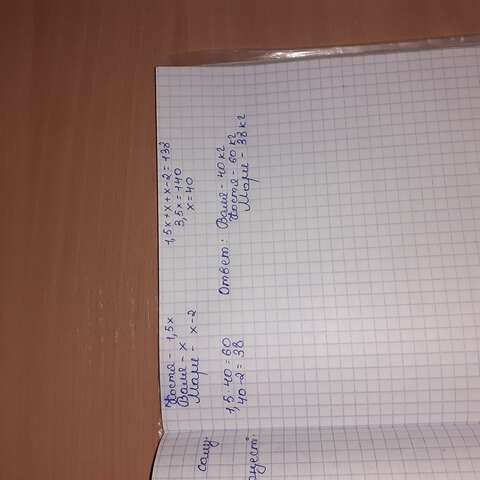 Костя - 1,5x
Валя - x
Мари - x-2
1,5x+x+x-2=138
3,5x=140
x=40
1,5·40=60
40-2=38
Ответ: Валя - 40 кг
Костя - 60 кг
Мари - 38 кг
сашу.